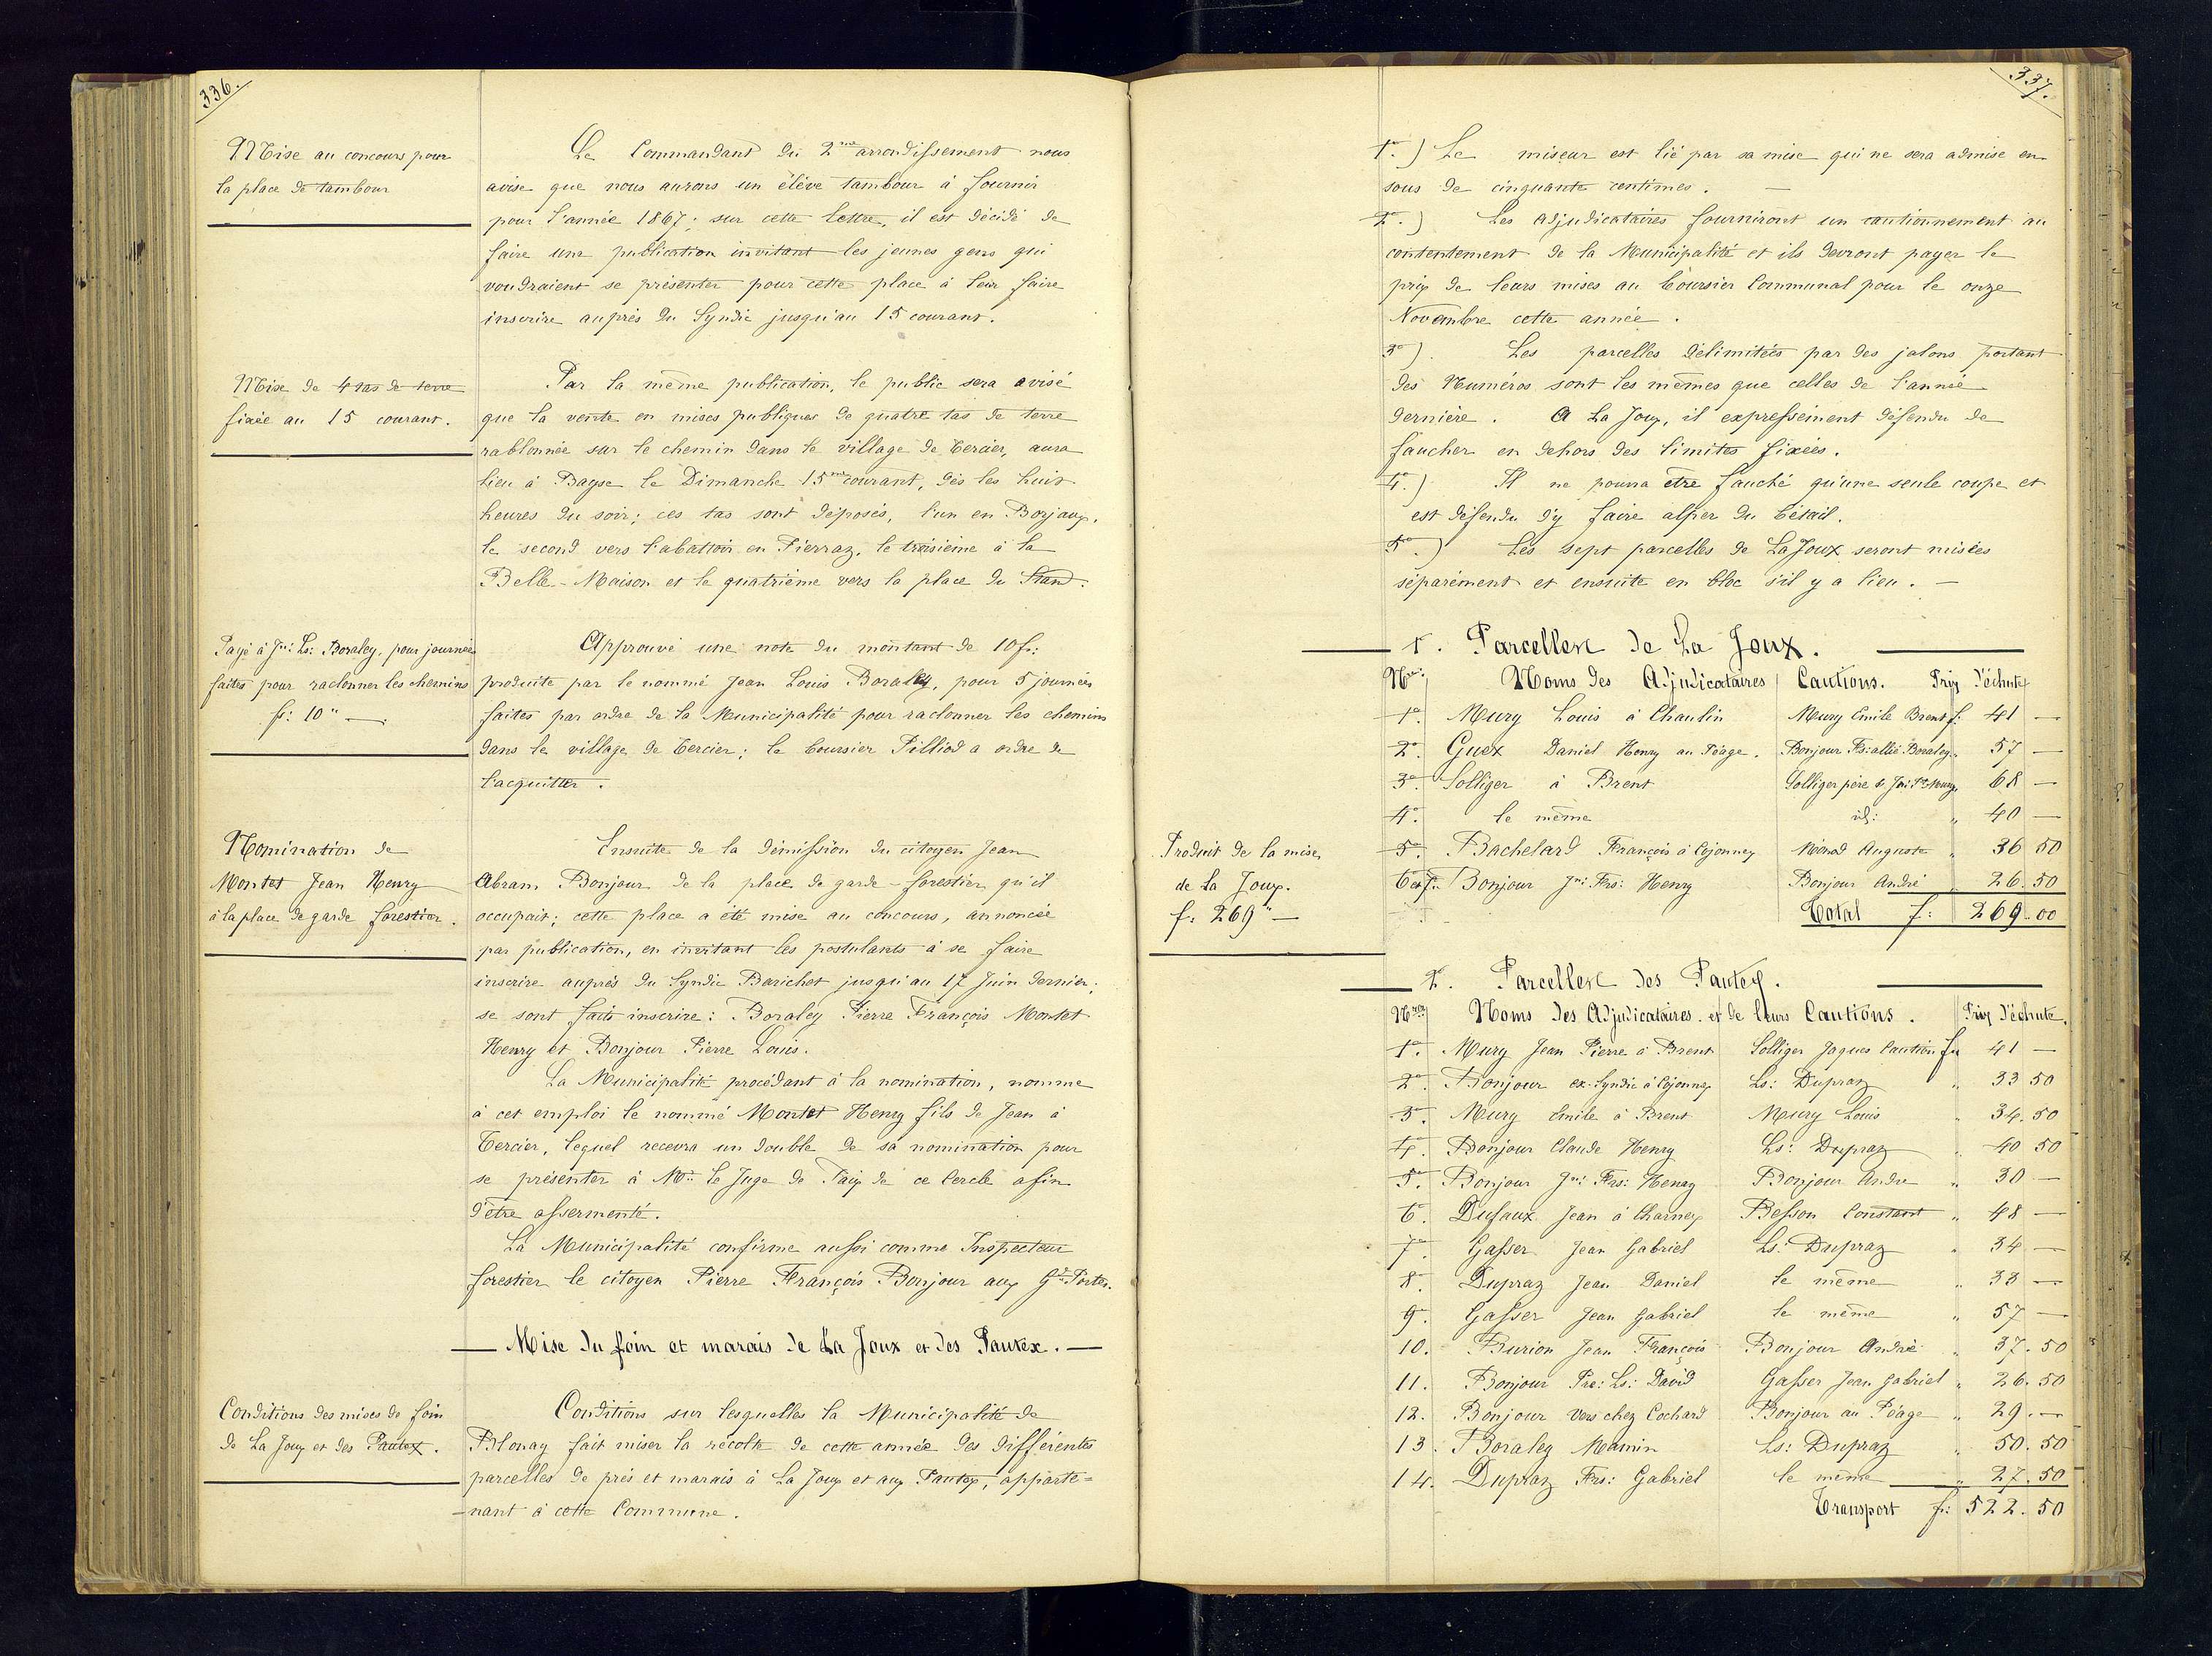 336.
Mise au concours pour
la place de tambour
Le Commandant du 2me arrondissement nous
avise que nous aurons un élève tambour à fournir
pour l'année 1867; sur cette lettre, il est décidé de
faire une publication invitant les jeunes gens qui
voudraient se présenter pour cette place à leur faire
inscrire auprès du Syndic jusqu'au 15 courant.
Mise de 4 tas de terre
fixée au 15 courant.
Par la même publication, le public sera avisé
que la vente en mises publiques de quatre tas de terre
rablonnée sur le chemin dans le village de Tercier, aura
lieu à Bayse le Dimanche 15me courant, dès les huit
heures du soir; ces tas sont déposés, l'un en Borjaux,
le second vers l'abattoir en Pierraz, le troisième à la
Belle-Maison et le quatrième vers la place du Stand.
Payé à Jn: Ls: Boraley, pour journées
faites pour raclonner les chemins
fr: 10" —
Approuvé une note du montant de 10 fr:
produite par le nommé Jean Louis Boraley, pour 5 journées
faites par ordre de la Municipalité pour raclonner les chemins
dans le village de Tercier; le boursier Pilliod a ordre de
l'acquitter.
Nomination de
Montet Jean Henry
à la place de garde forestier.
Ensuite de la démission du citoyen Jean
Abram Bonjour de la place de garde-forestier qu'il
occupait; cette place a été mise au concours, annoncée
par publication, en invitant les postulants à se faire
inscrire auprès du Syndic Barichet jusqu'au 17 Juin dernier;
se sont faits inscrire: Boraley Pierre François Montet
Henry et Bonjour Pierre Louis.
La Municipalité procédant à la nomination, nomme
à cet emploi le nommé Montet Henry fils de Jean à
Tercier, lequel recevra un double de sa nomination pour
se présenter à Mr: le Juge de Paix de ce Cercle afin
d'être assermenté.
La Municipalité confirme aussi comme Inspecteur
forestier le citoyen Pierre François Bonjour aux Gdes Portes.
— Mise du foin et marais de La Joux et des Pautex. —
Conditions des mises de foin
de La Joux et des Pautex.
Conditions sur lesquelles la Municipalité de
Blonay fait miser la récolte de cette année des différentes
parcelles de prés et marais à La Joux et aux Pautex, apparte=
nant à cette Commune.
337.
1o.) Le miseur est lié par sa mise qui ne sera admise en
sous de cinquante centimes. —
2o.) Les adjudicataires fourniront un cautionnement au
contentement de la Municipalité et ils devront payer le
prix de leurs mises au boursier Communal pour le onze
Novembre cette année.
3o). Les parcelles délimitées par des jalons portant
des Numéros sont les mêmes que celles de l'année
dernière. A La Joux, il expressément défendu de
faucher en dehors des limites fixées.
4o.) Il ne pourra être fauché qu'une seule coupe et
est défendu d'y faire alper du bétail.
5o.) Les sept parcelles de La Joux seront misées
séparément et ensuite en bloc s'il y a lieu. —
1. Parcelles de La Joux.
Nos: Noms des Adjudicataires Cautions. Prix d'échute
1o. Mury Louis à Chaulin Mury Emile Brent f. 41 —
2o. Guex Daniel Henry au Péage. Bonjour Fs: allié Boraley " 57 —
3o. Solliger à Brent Solliger père & Jn: Pre Mury " 68 —
4o. le même id: " 40 —
5o. Bachelard François à Cojonnex Monod Auguste " 36 50
6 et 7. Bonjour Jn: Frs: Henry Bonjour André " 26.50
Total f: 269.00
Produit de la mise
de La Joux.
f: 269" —
2. Parcelles des Pautex.
Nros Noms des Adjudicataires et de leurs Cautions. Prix d'échute.
1o. Mury Jean Pierre à Brent Solliger Jaques Caution fr 41 —
2o. Bonjour ex-Syndic à Cojonnex Ls: Dupraz " 33 50
3o. Mury Emile à Brent Mury Louis " 34.50
4o. Bonjour Claude Henry Ls: Dupraz " 40 50
5o. Bonjour Jn: Frs: Henry Bonjour André " 30 —
6o. Dufaux Jean à Charnex Besson Constant " 48 —
7o. Gasser Jean Gabriel Ls: Dupraz " 34 —
8o. Dupraz Jean Daniel le même " 33 —
9o. Gasser Jean Gabriel le même " 57 —
10. Burion Jean François Bonjour André " 37.50
11. Bonjour Pre: Ls: David Gasser Jean Gabriel " 26.50
12. Bonjour vers chez Cochard Bonjour au Péage " 29. —
13. Boraley Mamin Ls: Dupraz " 50.50
14. Dupraz Frs: Gabriel le même " 27.50
Transport fr: 522.50